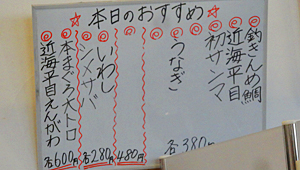 ☆本日のおすすめ☆
釣きんめ鯛
近海平目
初サンマ
うなぎ
各380円
いわし
480円
シメサバ
各280円
本まぐろ大トロ
近海平目えんがわ
各600円